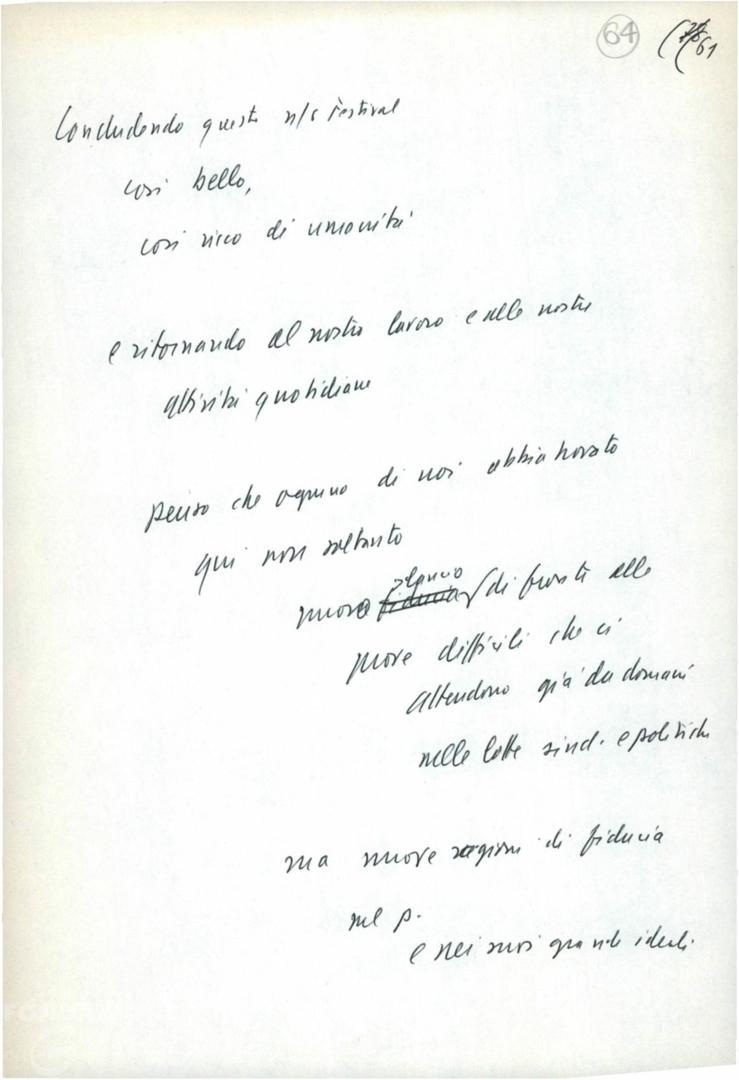 64
61
Concludendo questo n/s Festival
così bello,
così ricco di umanità
e ritornando al nostro lavoro e alle nostre
attività quotidiane
penso che ognuno di noi abbia trovato
qui non soltanto
slancio
nuovo fiducia di fronte alle
prove difficili che ci
attendono già da domani
nelle lotte sind. e politiche
ma nuove ragioni di fiducia
nel p.
e nei suoi grandi ideali.